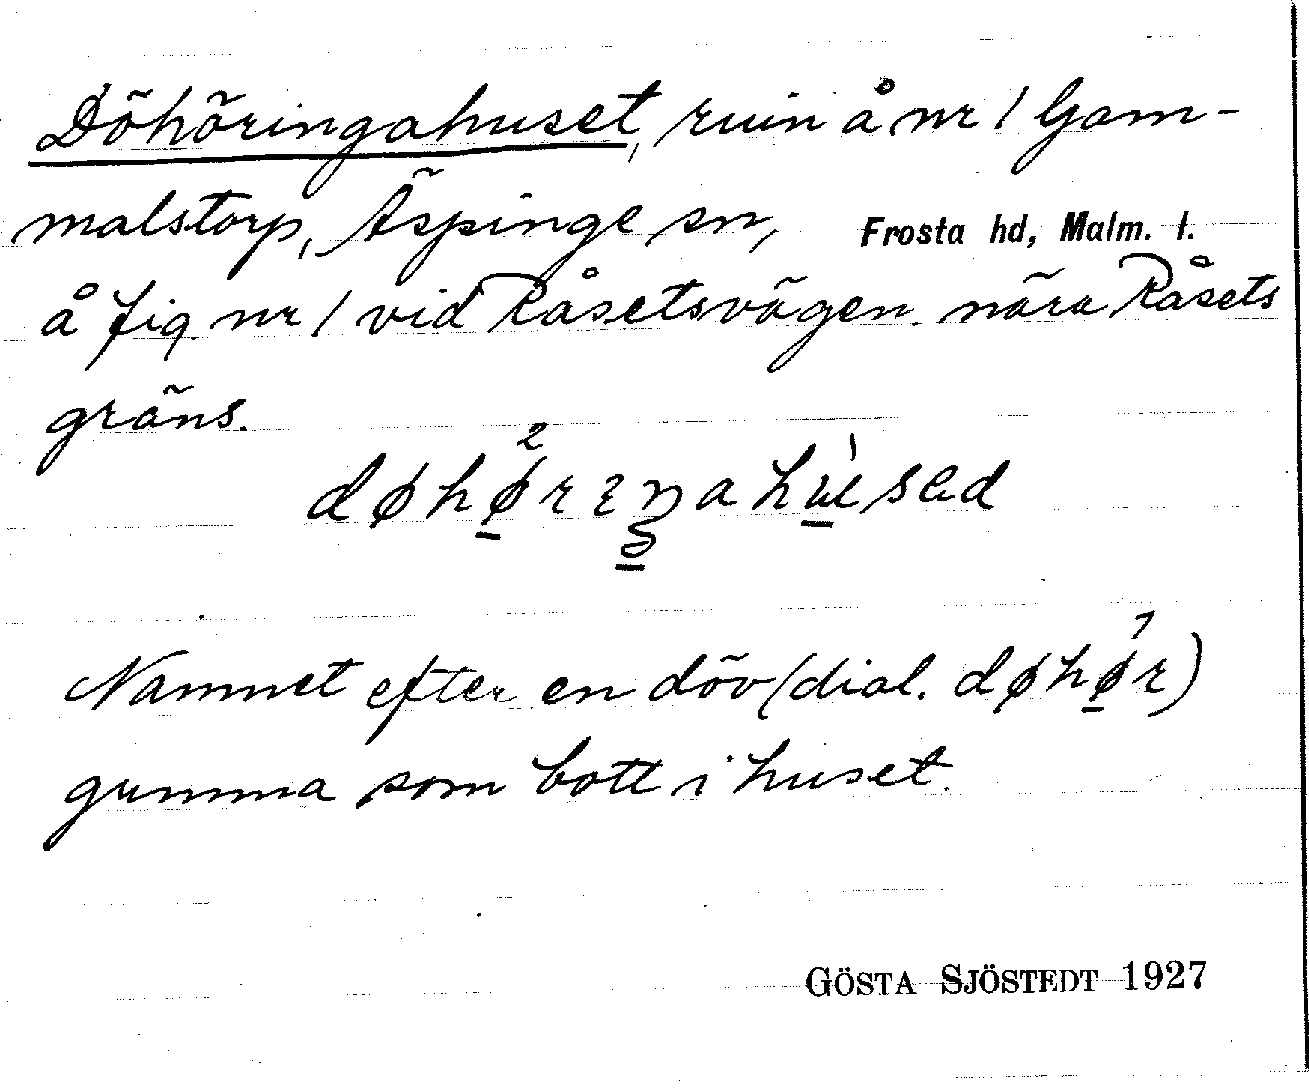 Döhöringahuset, ruin å nr 1 Gam-
malstorp, Äspinge sn, Frosta hd, Malm. l.
å fig nr 1 vid Råsetsvägen nära Råsets
gräns.
Namnet efter en döv (dial. døhø̱r)
gumma som bott i huset.
GÖSTA SJÖSTEDT 1927